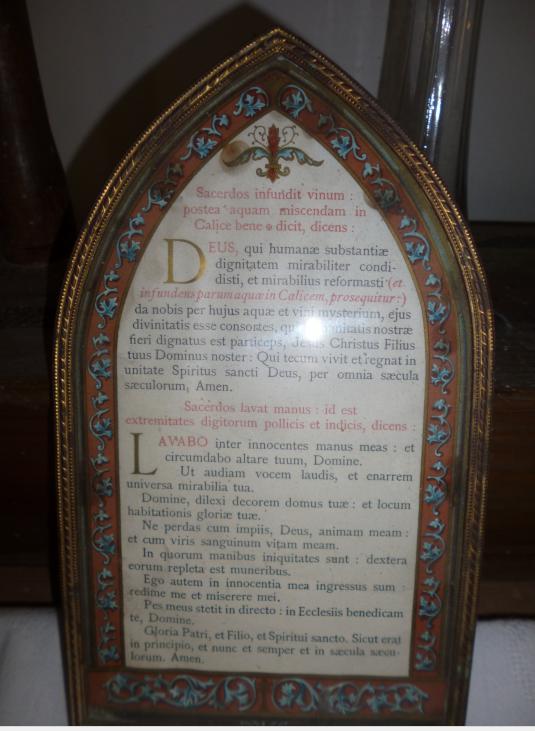 Sacerdos infundit vinum :
postea aquam miscendam in
Calice bene ✠ dicit, dicens :
DEUS, qui humanæ substantiæ
dignitatem mirabiliter condi-
disti, et mirabilius reformasti (et
infundens parum aquæ in Calicem, prosequitur :)
da nobis per hujus aquæ et vini mysterium, ejus
divinitatis esse consortes, qui humanitatis nostræ
fieri dignatus est particeps, Jesus Christus Filius
tuus Dominus noster : Qui tecum vivit et regnat in
unitate Spiritus sancti Deus, per omnia sæcula
sæculorum, Amen.
Sacerdos lavat manus : id est
extremitates digitorum pollicis et indicis, dicens :
LAVABO inter innocentes manus meas : et
circumdabo altare tuum, Domine.
Ut audiam vocem laudis, et enarrem
universa mirabilia tua.
Domine, dilexi decorem domus tuæ : et locum
habitationis gloriæ tuæ.
Ne perdas cum impiis, Deus, animam meam :
et cum viris sanguinum vitam meam.
In quorum manibus iniquitates sunt : dextera
eorum repleta est muneribus.
Ego autem in innocentia mea ingressus sum :
redime me et miserere mei.
Pes meus stetit in directo : in Ecclesiis benedicam
te, Domine.
Gloria Patri, et Filio, et Spiritui sancto. Sicut erat
in principio, et nunc et semper et in sæcula sæcu-
lorum. Amen.